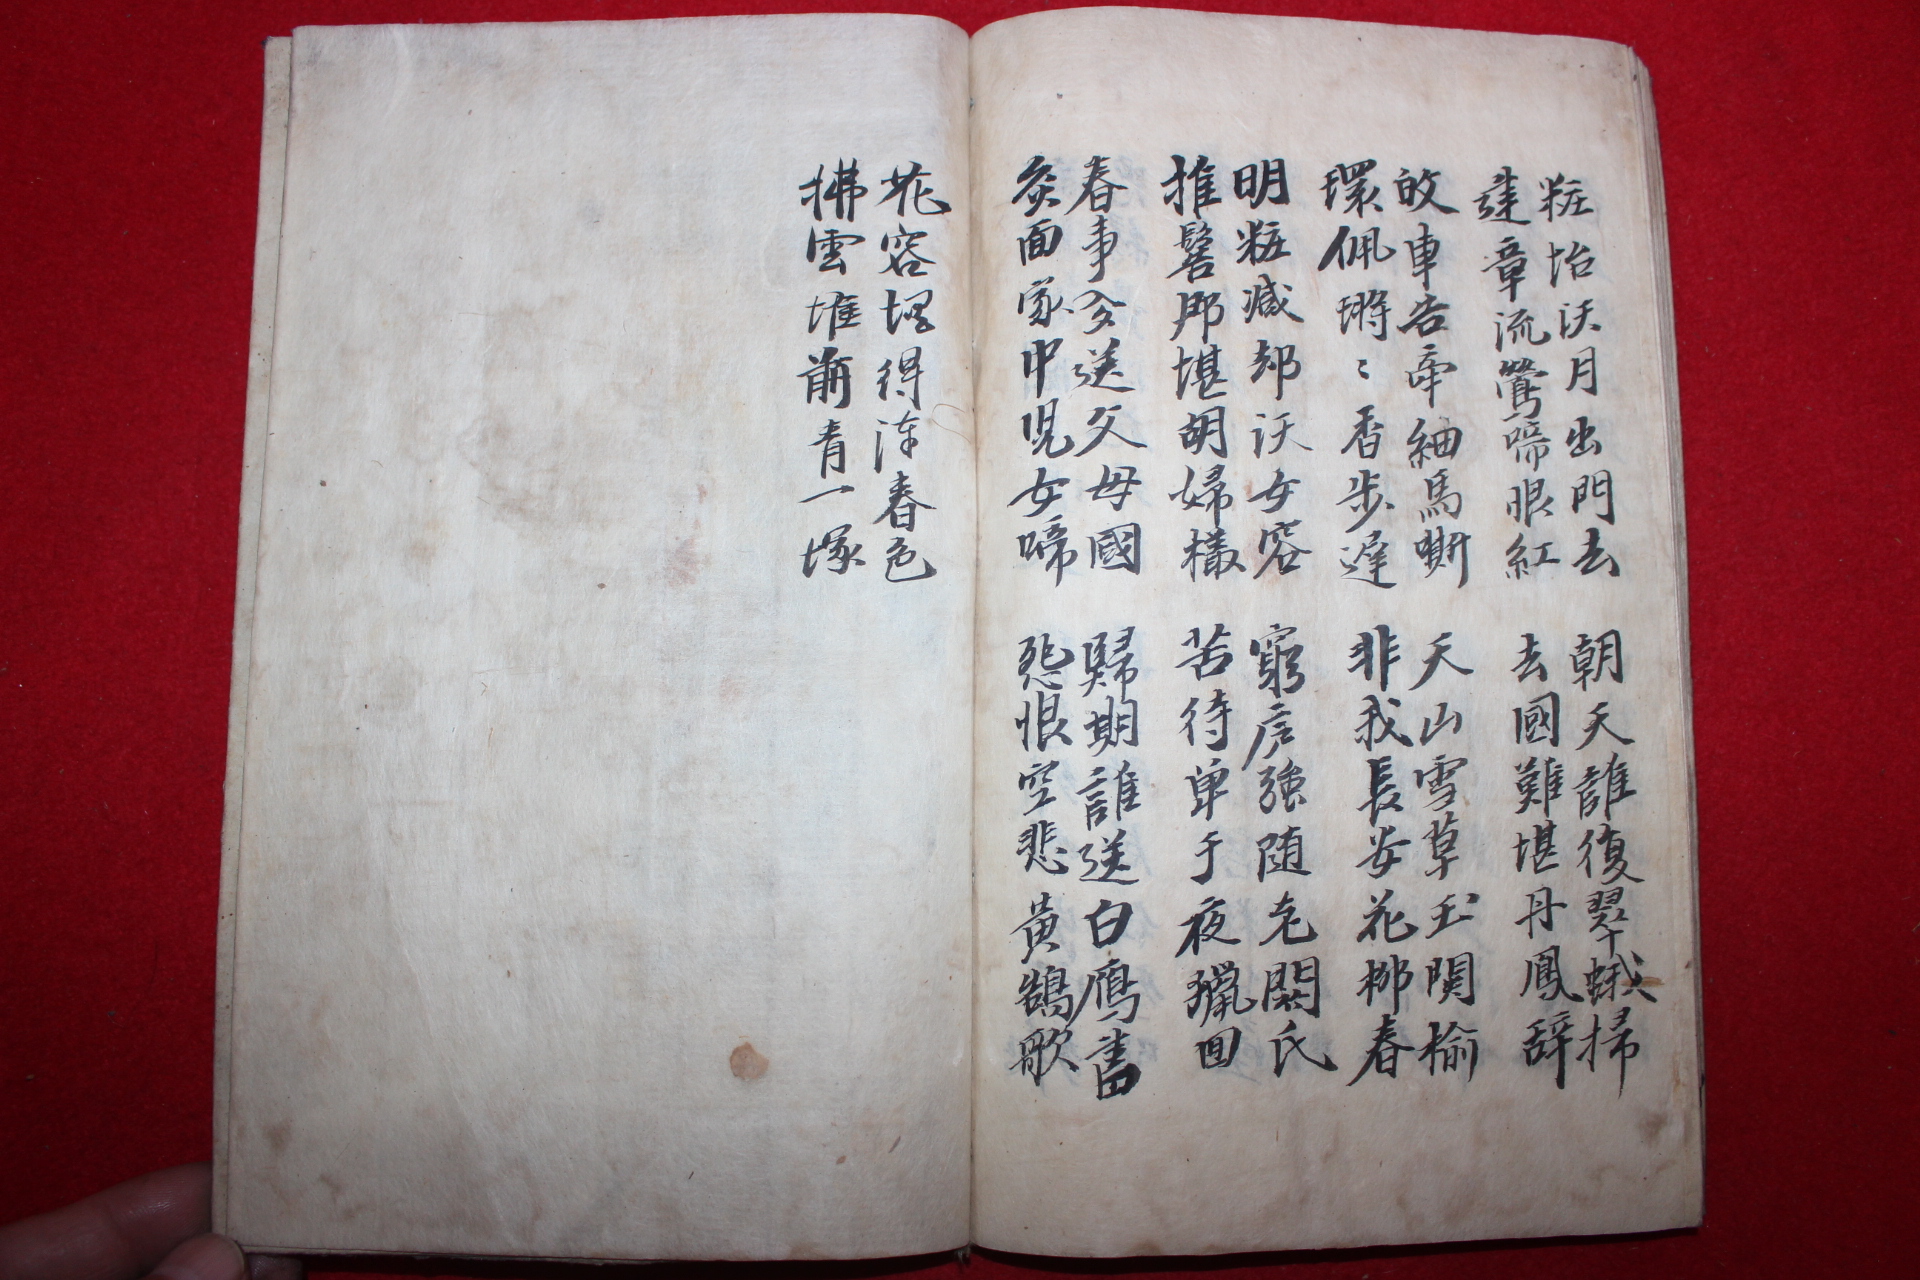 粧怡沃月出門去
建章流鶯啼眼紅
朝天誰復翠蛾掃
去國難堪丹鳳辭
皎車告帝紬馬嘶
環佩瑲〻香步遲
天山雪草玉関榆
非我長安花柳春
明粧减却沃女容
推髻那堪胡婦樣
窮虜強随老閼氏
苦待单于夜獵回
春事今送父母國
灸面家中児女啼
歸期誰送白鴈書
怨恨空悲黃鵠歌
花容埋得春色
拂雲堆前青一塚